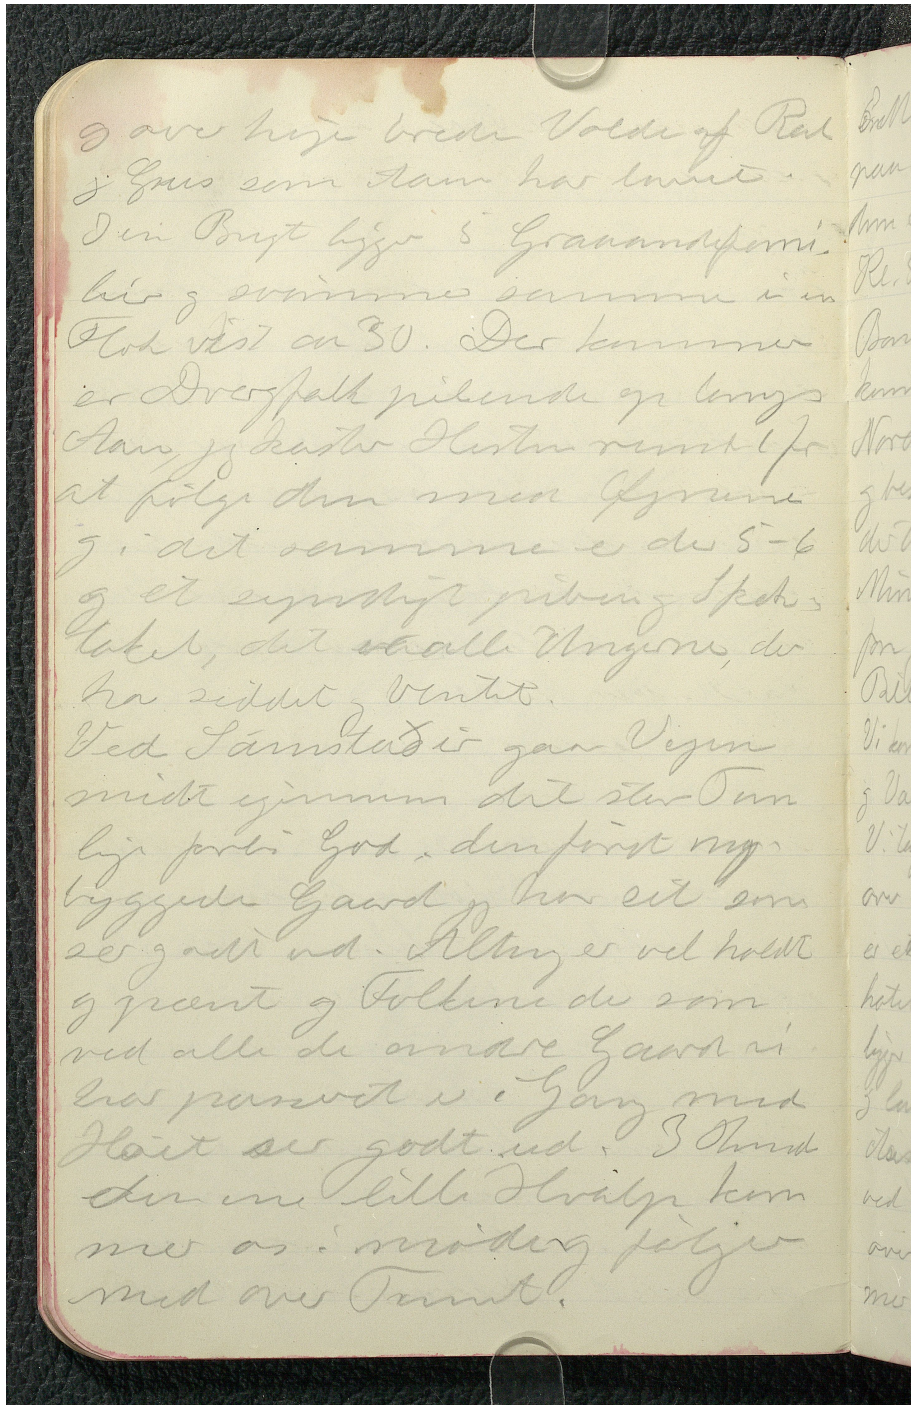 og over høje brede Volde af Ral
og Grus som Aaen har lavet.
I en Bugt ligger 5 Graaandefami-
lier og svømmer sammen i en
Flok vist ca 30. Der kommer
er Dvergfalk pibende op langs
Aaen, jeg kaster Hesten rundt for
at følge den med Øjnene
og i det samme er der 5-6
og et syndigt piben og Spek-
takel, det er alle Ungerne, der
har siddet og ventet.
Ved Sámstaðir gaar Vejen
midt igennem det store Tun
lige forbi Gaard, den første ny-
byggede Gaard jeg har set som
ser godt ud. Alting er vel holdt
og pænt og Folkene der som
ved alle de andre Gaarde vi
har passeret er i Gang med
Høet ser godt ud. 3 Hund
den ene lille Hvalp kom
mer os i møde og følger
med over Tunet.